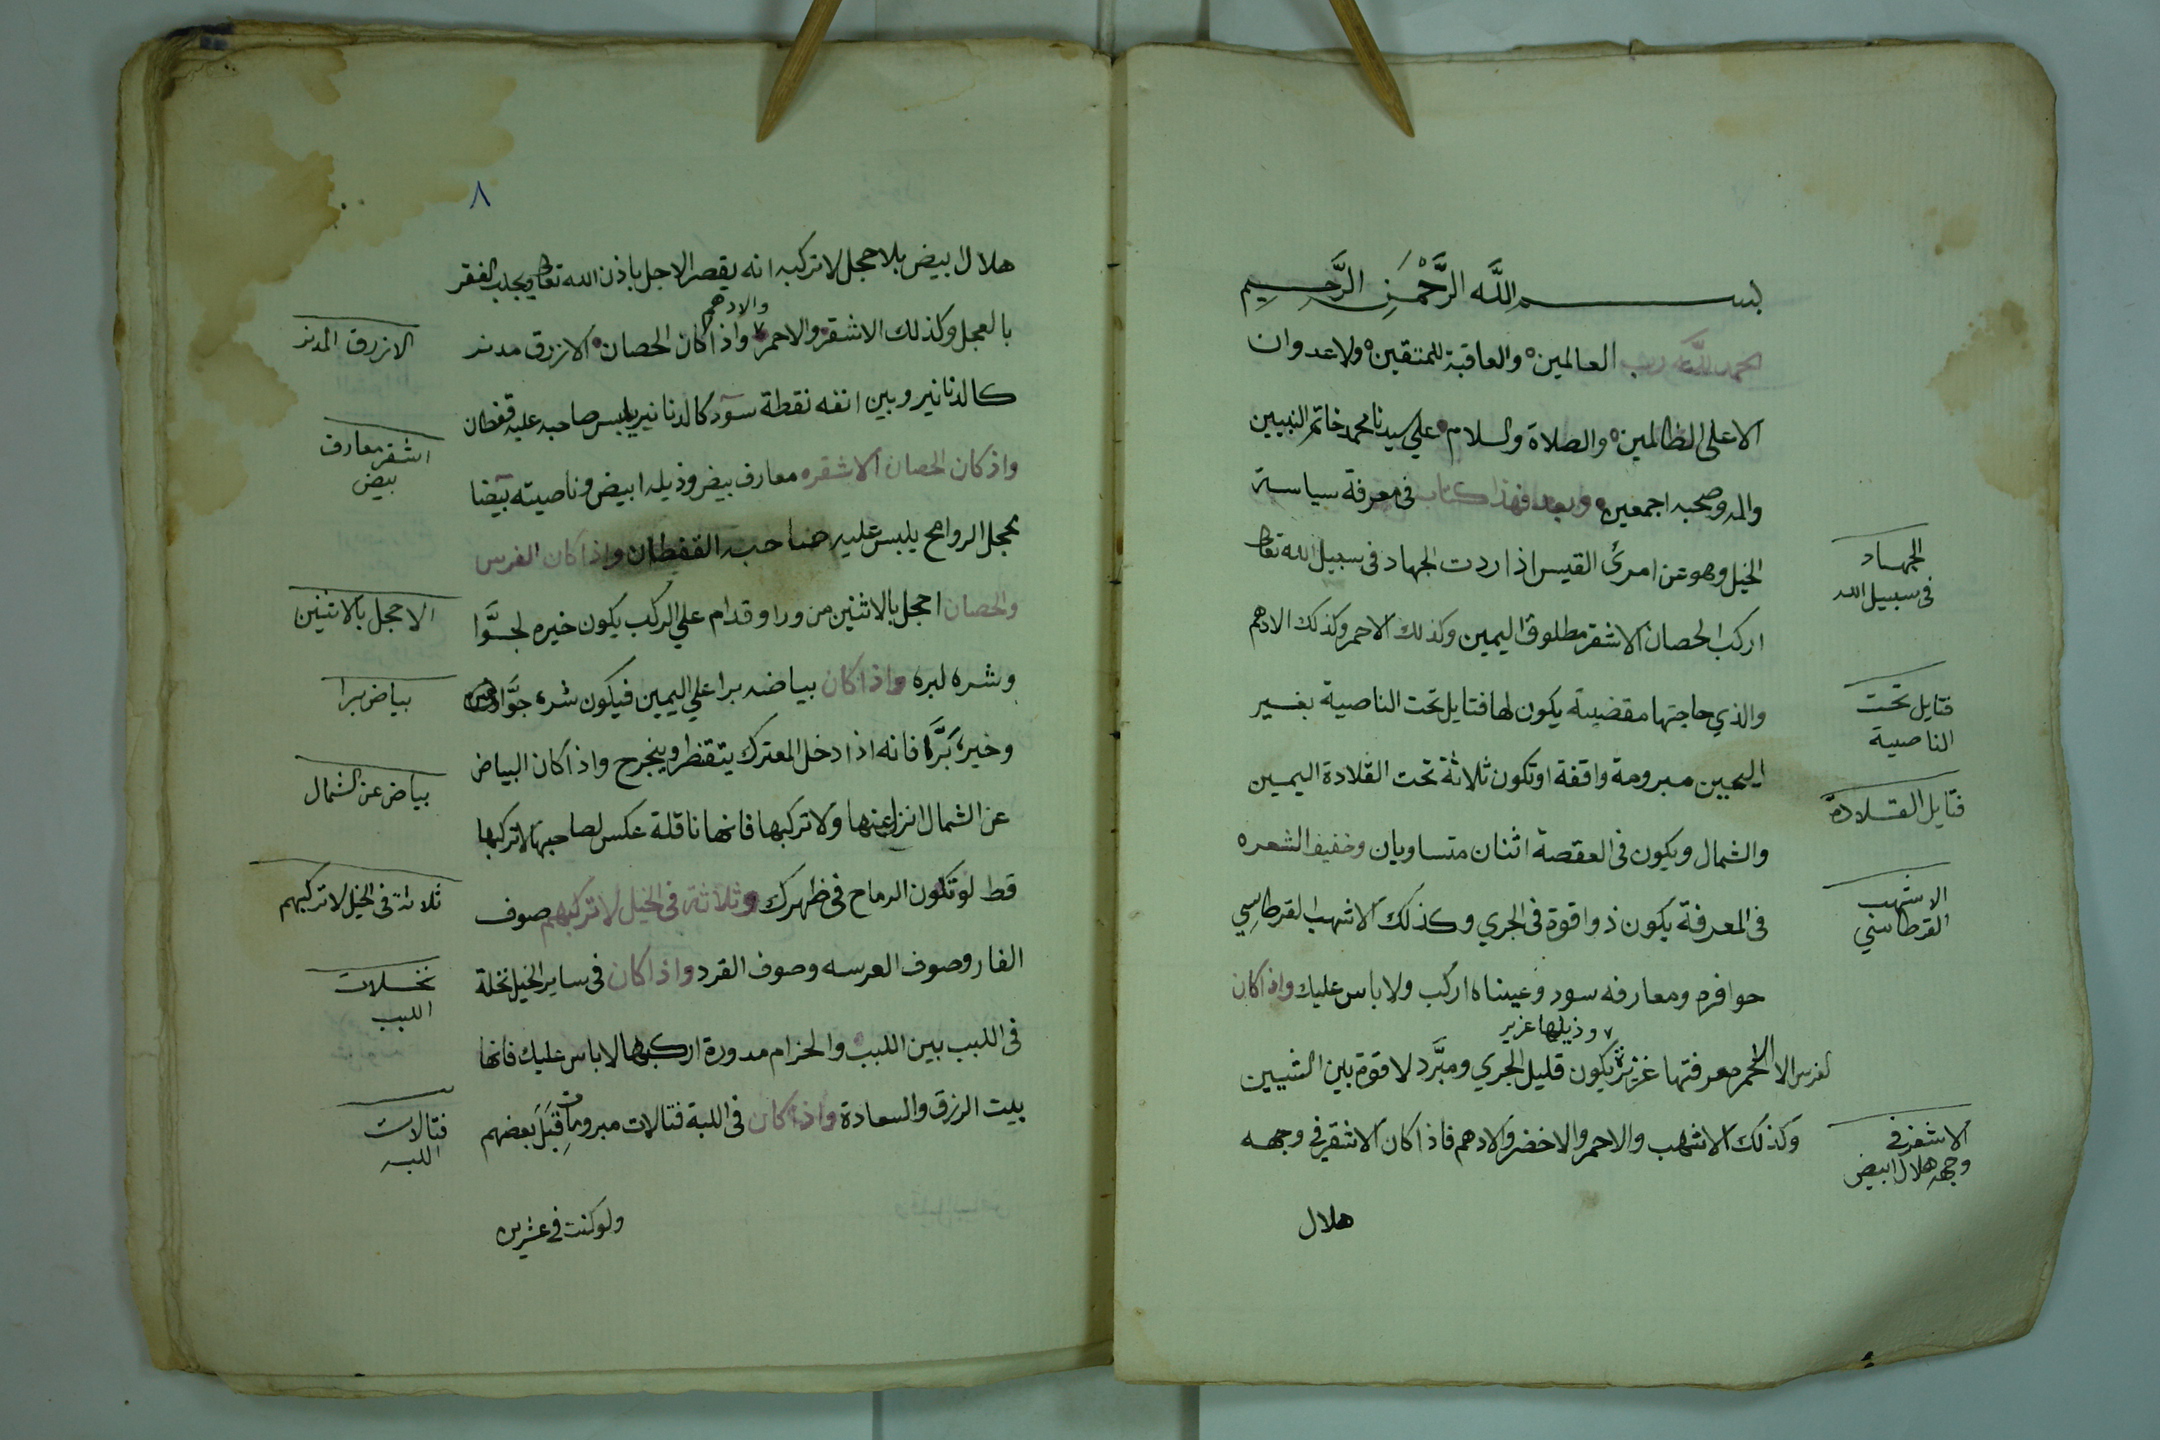 بسم الله الرَّحْمَنِ الرَّحِيمِ
الحمد لله رب العالمين والعاقبة للمتقين ولا عدوان
الا على الظالمين والصلاة والسلام علي سيدنا محمد خاتم النبيين
واله وصحبه اجمعين وبعد فهذا كتاب في معرفة سياسة
الخيل وهو عن امرئ القيس اذا ردت الجهاد في سبيل الله تعالى
اركب الحصان الاشقر مطلوق اليمين وكذلك الاحمر وكذلك الادهم
والذي حاجتها مقضية يكون لها فتايل تحت الناصية بغير
اليمين مبرومة واقفة او تكون ثلاثة تحت القلادة اليمين
والشمال ويكون في العقصة اثنان متساويان وخفيف الشعره
في المعرفة يكون ذو اقوة في الجري وكذلك الاشهب القرطاسي
حوافره ومعارفه سود وعيناه اركب ولا باس عليك واذا كان
وذيلها عزير
الاحمر معرفتها غزيرة يكون قليل الجري ومبَّرد لا قوة بين الشيين
وكذلك الاشهب والاحمر والاخضر والادهم فاذا كان الاشقر في وجهه
هلال
الجهاد
في سبيل الله
فتايل تحت
الناصية
فتايل القلادة
الاشهب
القرطاسي
الاشقر في
وجهه هلال ابيض
٨
هلال ابيض بلا حجل لا تركبه انه يقصر الاجل باذن الله تعالى ويجلب الفقر
والادهم
بالعجل وكذلك الاشقر والاحمر واذا كان الحصان الازرق مدنر
كالدنانير وبين انفه نقطة سود كالدنانير يلبس صاحبه عليه قفطان
واذ كان الحصان الاشقره معارف بيض وذيله ابيض وناصيته بيضا
محجل الروامح يلبس عليه صاحبه القفطان واذا كان الفرس
والحصان احجل بالاثنين من ورا وقدام علي الركب يكون خيره لجوَّا
وشره لبره واذا كان بياضه برا علي اليمين فيكون شره جوَّا
وخيره بَرَّا فانه اذا دخل المعترك يتقنطر وينجرح واذا كان البياض
عن الشمال انزل عنها ولا تركبها فانها ناقلة عكس لصاحبها لا تركبها
قط لو تكون الرماح في ظهرك وثلاثة في الخيل لا تركبهم صوف
الفار وصوف العرسه وصوف القرد واذا كان في ساير الخيل نخلة
في اللبب بين اللبب والحزام مدورة اركبها لا باس عليك فانها
بيت الرزق والسعادة واذا كان في اللبة فتالات مبرومات قِبَلَ بعضهم
ولو كنت في عشرين
الازرق المدنر
اشقر معارف
بيض
الاحجل بالاثنين
بياض برا
بياض عن الشمال
ثلاثة في الخيل لا تركبهم
نخلات
اللبب
فتالات
اللبه